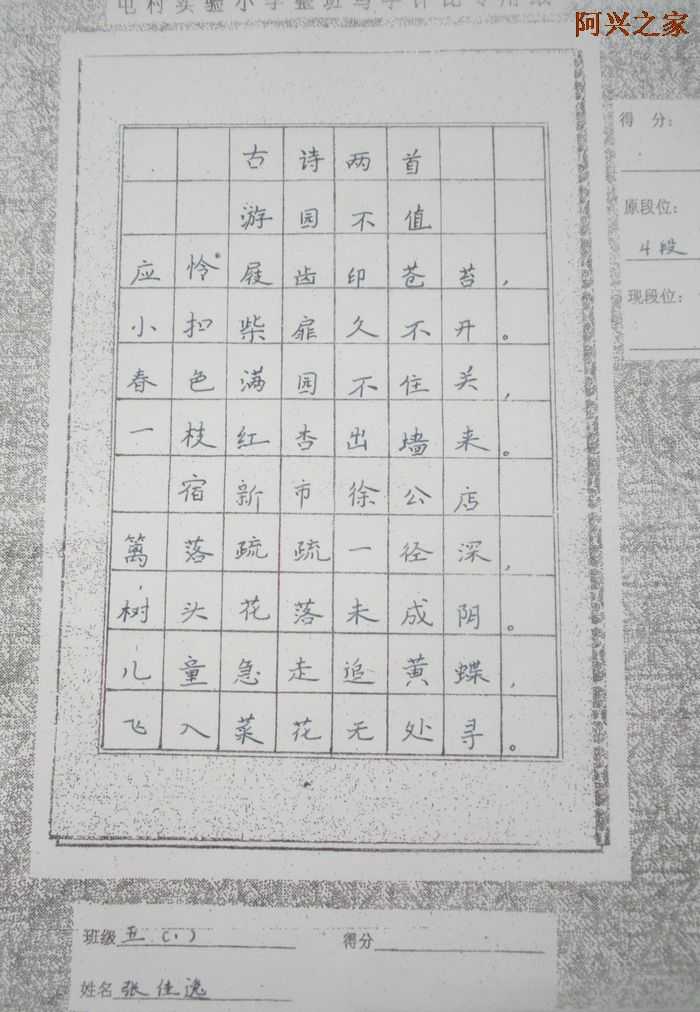 屯村实验小学整班写字评比专用纸
阿兴之家
得 分：
原段位：
4段
现段位：
古诗两首
游园不值
应怜屐齿印苍苔，
小扣柴扉久不开。
春色满园不住关，
一枝红杏出墙来。
宿新市徐公店
篱落疏疏一径深，
树头花落未成阴。
儿童急走追黄蝶，
飞入菜花无处寻。
班级 五（1） 得分
姓名 张佳逸